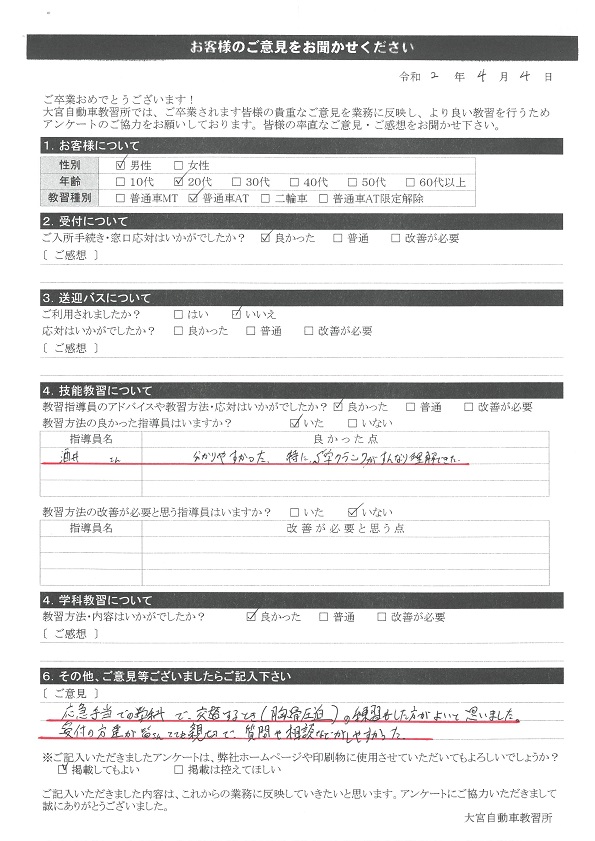 お客様のご意見をお聞かせください
令和 2 年 4 月 4 日
ご卒業おめでとうございます！
大宮自動車教習所では、ご卒業されます皆様の貴重なご意見を業務に反映し、より良い教習を行うため
アンケートのご協力をお願いしております。皆様の率直なご意見・ご感想をお聞かせ下さい。
1. お客様について
性別 ☑ 男性 □ 女性
年齢 □ 10代 ☑ 20代 □ 30代 □ 40代 □ 50代 □ 60代以上
教習種別 □ 普通車MT ☑ 普通車AT □ 二輪車 □ 普通車AT限定解除
2. 受付について
ご入所手続き・窓口応対はいかがでしたか？ ☑ 良かった □ 普通 □ 改善が必要
[ ご感想 ]
3. 送迎バスについて
ご利用されましたか？ □ はい ☑ いいえ
応対はいかがでしたか？ □ 良かった □ 普通 □ 改善が必要
[ ご感想 ]
4. 技能教習について
教習指導員のアドバイスや教習方法・応対はいかがでしたか？ ☑ 良かった □ 普通 □ 改善が必要
教習方法の良かった指導員はいますか？ ☑ いた □ いない
指導員名 良かった点
酒井 さん 分かりやすかった、特に、S字クランクがすんなり理解できた
教習方法の改善が必要と思う指導員はいますか？ □ いた ☑ いない
指導員名 改善が必要と思う点
4. 学科教習について
教習方法・内容はいかがでしたか？ ☑ 良かった □ 普通 □ 改善が必要
[ ご感想 ]
6. その他、ご意見等ございましたらご記入下さい
[ ご意見 ]
応急手当での学科で、交替するとき(胸骨圧迫)の練習をした方がよいと思いました。
受付の方達が皆さんとても親切で、質問や相談などがしやすかった
※ご記入いただきましたアンケートは、弊社ホームページや印刷物に使用させていただいてもよろしいでしょうか？
☑ 掲載してもよい □ 掲載は控えてほしい
ご記入いただきました内容は、これからの業務に反映していきたいと思います。アンケートにご協力いただきまして
誠にありがとうございました。
大宮自動車教習所